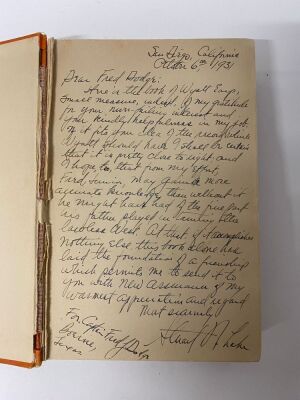 San Diego, California
October 6th, 1931
Dear Fred Dodge:
Here is the book of Wyatt Earp,
small measure, indeed, of my gratitude
for your unfailing interest and
your kindly helpfulness in my job
of it. If its your idea of the record
Wyatt should have I shall be certain
that it is pretty close to right, and
I hope, too, that from my effort,
Fred, Junior, may gain a more
accurate knowledge than without it
he might have had of the true part
his father played in
lawless West. At that, if it accomplishes
nothing else this book alone has
laid the foundation of a friendship
which permits me to send it to
you with new assurance of my
warmest appreciation and regard
Most sincerely
Stuart N. Lake
For Fred J. Dodge
Boerne,
Texas